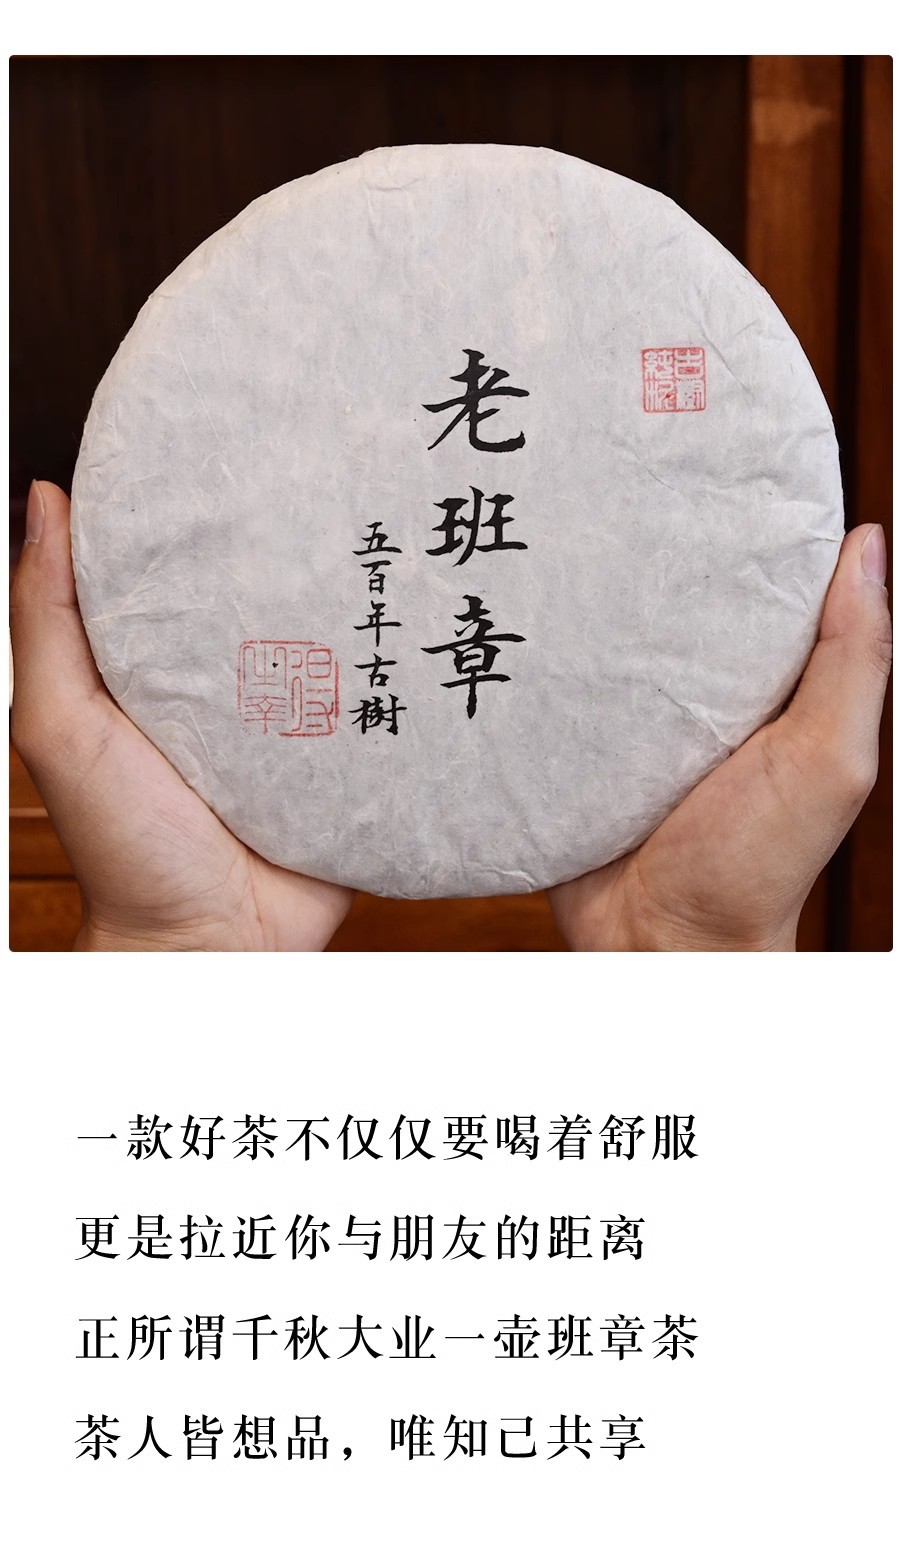 老班章
五百年古樹
一款好茶不仅仅要喝着舒服
更是拉近你与朋友的距离
正所谓千秋大业一壶班章茶
茶人皆想品，唯知己共享